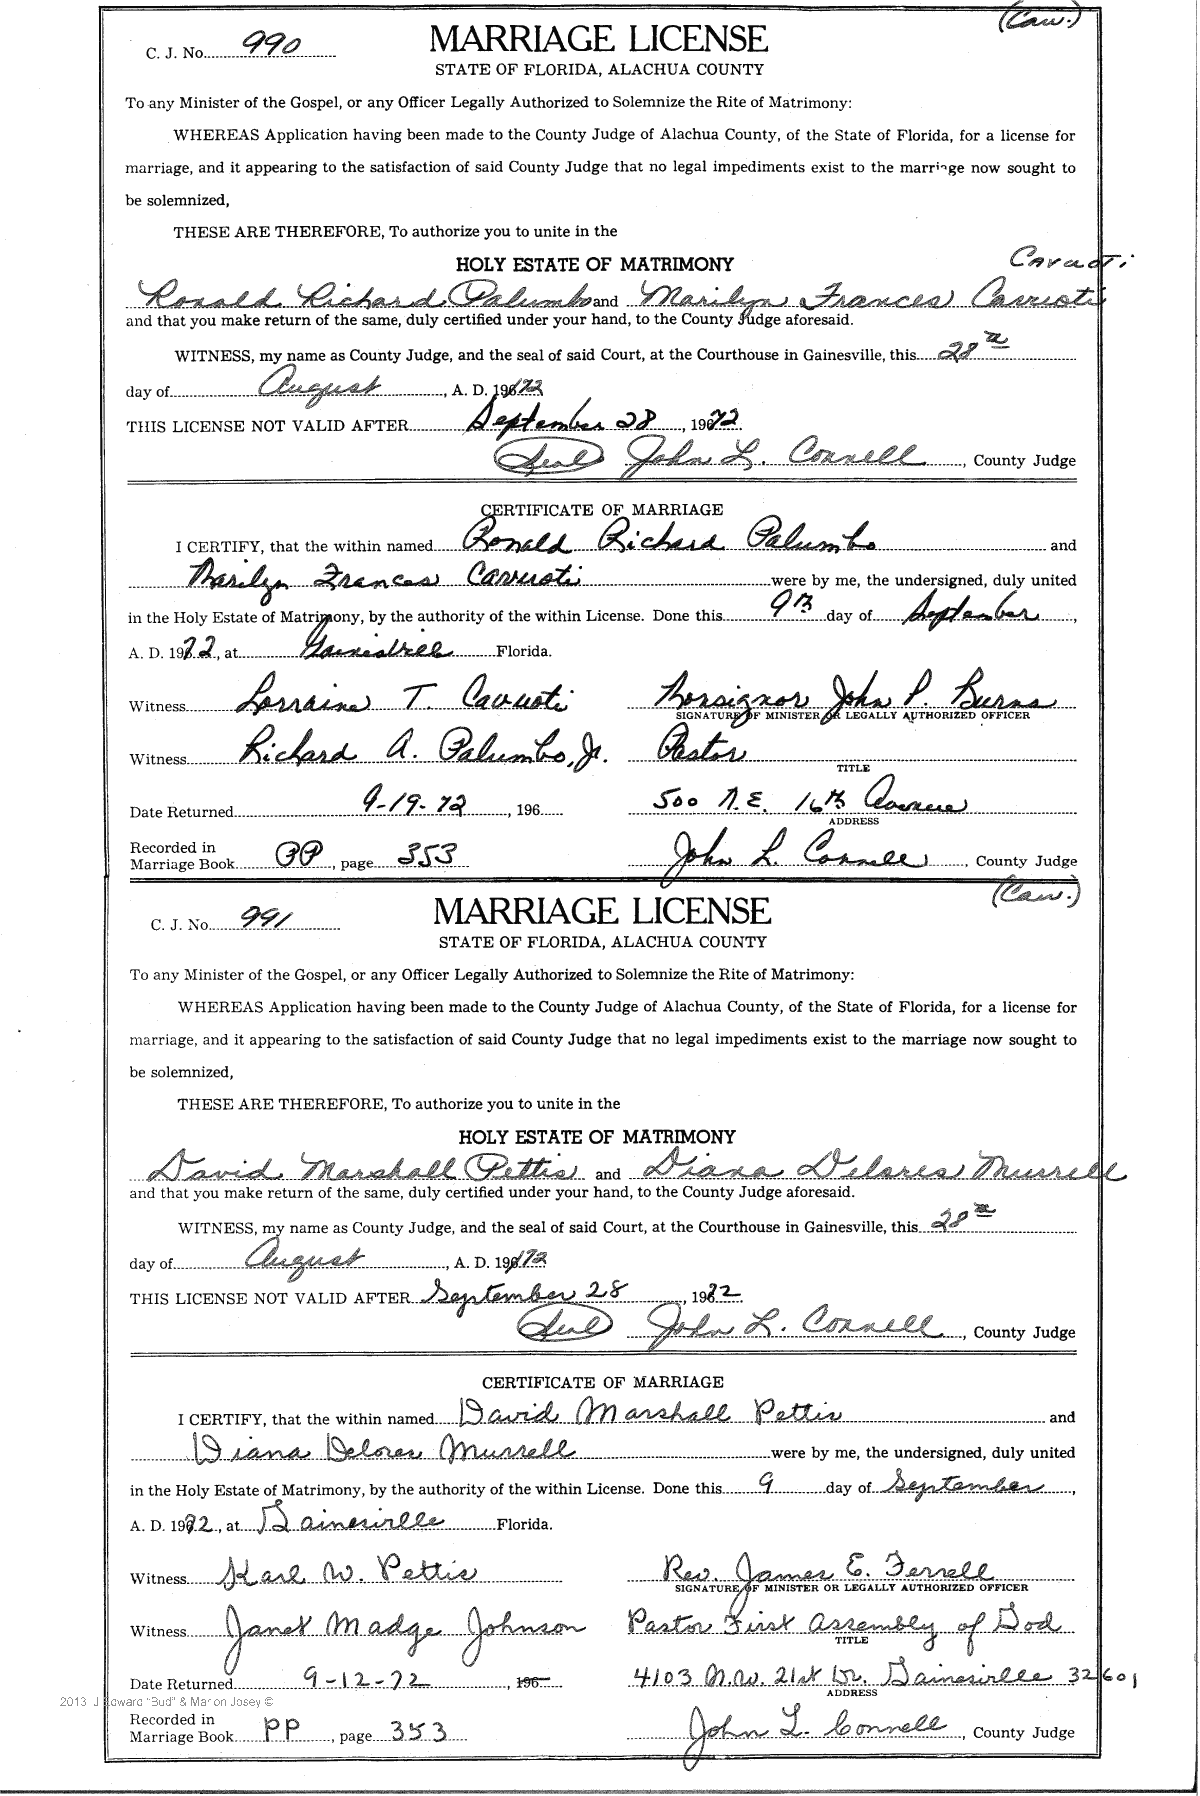 (Cau.)
C. J. No. 990 MARRIAGE LICENSE
STATE OF FLORIDA, ALACHUA COUNTY
To any Minister of the Gospel, or any Officer Legally Authorized to Solemnize the Rite of Matrimony:
WHEREAS Application having been made to the County Judge of Alachua County, of the State of Florida, for a license for
marriage, and it appearing to the satisfaction of said County Judge that no legal impediments exist to the marriage now sought to
be solemnized,
THESE ARE THEREFORE, To authorize you to unite in the
HOLY ESTATE OF MATRIMONY Cavuoti
Ronald Richard Palumbo and Marilyn Frances Cavuoti
and that you make return of the same, duly certified under your hand, to the County Judge aforesaid.
WITNESS, my name as County Judge, and the seal of said Court, at the Courthouse in Gainesville, this 28th
day of August, A. D. 1972
THIS LICENSE NOT VALID AFTER September 28, 1972
(Seal) John L. Connell, County Judge
CERTIFICATE OF MARRIAGE
I CERTIFY, that the within named Ronald Richard Palumbo and
Marilyn Frances Cavuoti were by me, the undersigned, duly united
in the Holy Estate of Matrimony, by the authority of the within License. Done this 9th day of September,
A. D. 1972, at Gainesville Florida.
Witness Lorraine T. Cavuoti Monsignor John P. Burns
SIGNATURE OF MINISTER OR LEGALLY AUTHORIZED OFFICER
Witness Richard A. Palumbo, Jr. Pastor
TITLE
Date Returned 9-19-72, 196 500 N.E. 16th Avenue
ADDRESS
Recorded in
Marriage Book PP, page 353 John L. Connell, County Judge
(Cau.)
C. J. No. 991 MARRIAGE LICENSE
STATE OF FLORIDA, ALACHUA COUNTY
To any Minister of the Gospel, or any Officer Legally Authorized to Solemnize the Rite of Matrimony:
WHEREAS Application having been made to the County Judge of Alachua County, of the State of Florida, for a license for
marriage, and it appearing to the satisfaction of said County Judge that no legal impediments exist to the marriage now sought to
be solemnized,
THESE ARE THEREFORE, To authorize you to unite in the
HOLY ESTATE OF MATRIMONY
David Marshall Pettis and Diana Delores Murrell
and that you make return of the same, duly certified under your hand, to the County Judge aforesaid.
WITNESS, my name as County Judge, and the seal of said Court, at the Courthouse in Gainesville, this 28th
day of August, A. D. 1972
THIS LICENSE NOT VALID AFTER September 28, 1972
(Seal) John L. Connell, County Judge
CERTIFICATE OF MARRIAGE
I CERTIFY, that the within named David Marshall Pettis and
Diana Delores Murrell were by me, the undersigned, duly united
in the Holy Estate of Matrimony, by the authority of the within License. Done this 9 day of September,
A. D. 1972, at Gainesville Florida.
Witness Karl W. Pettis Rev. James E. Ferrell
SIGNATURE OF MINISTER OR LEGALLY AUTHORIZED OFFICER
Witness Janet Madge Johnson Pastor First Assembly of God
TITLE
Date Returned 9-12-72, 196 4103 N.W. 21st Dr. Gainesville 32601
ADDRESS
2013 J Edward "Bud" & Marion Josey ©
Recorded in
Marriage Book PP, page 353 John L. Connell, County Judge